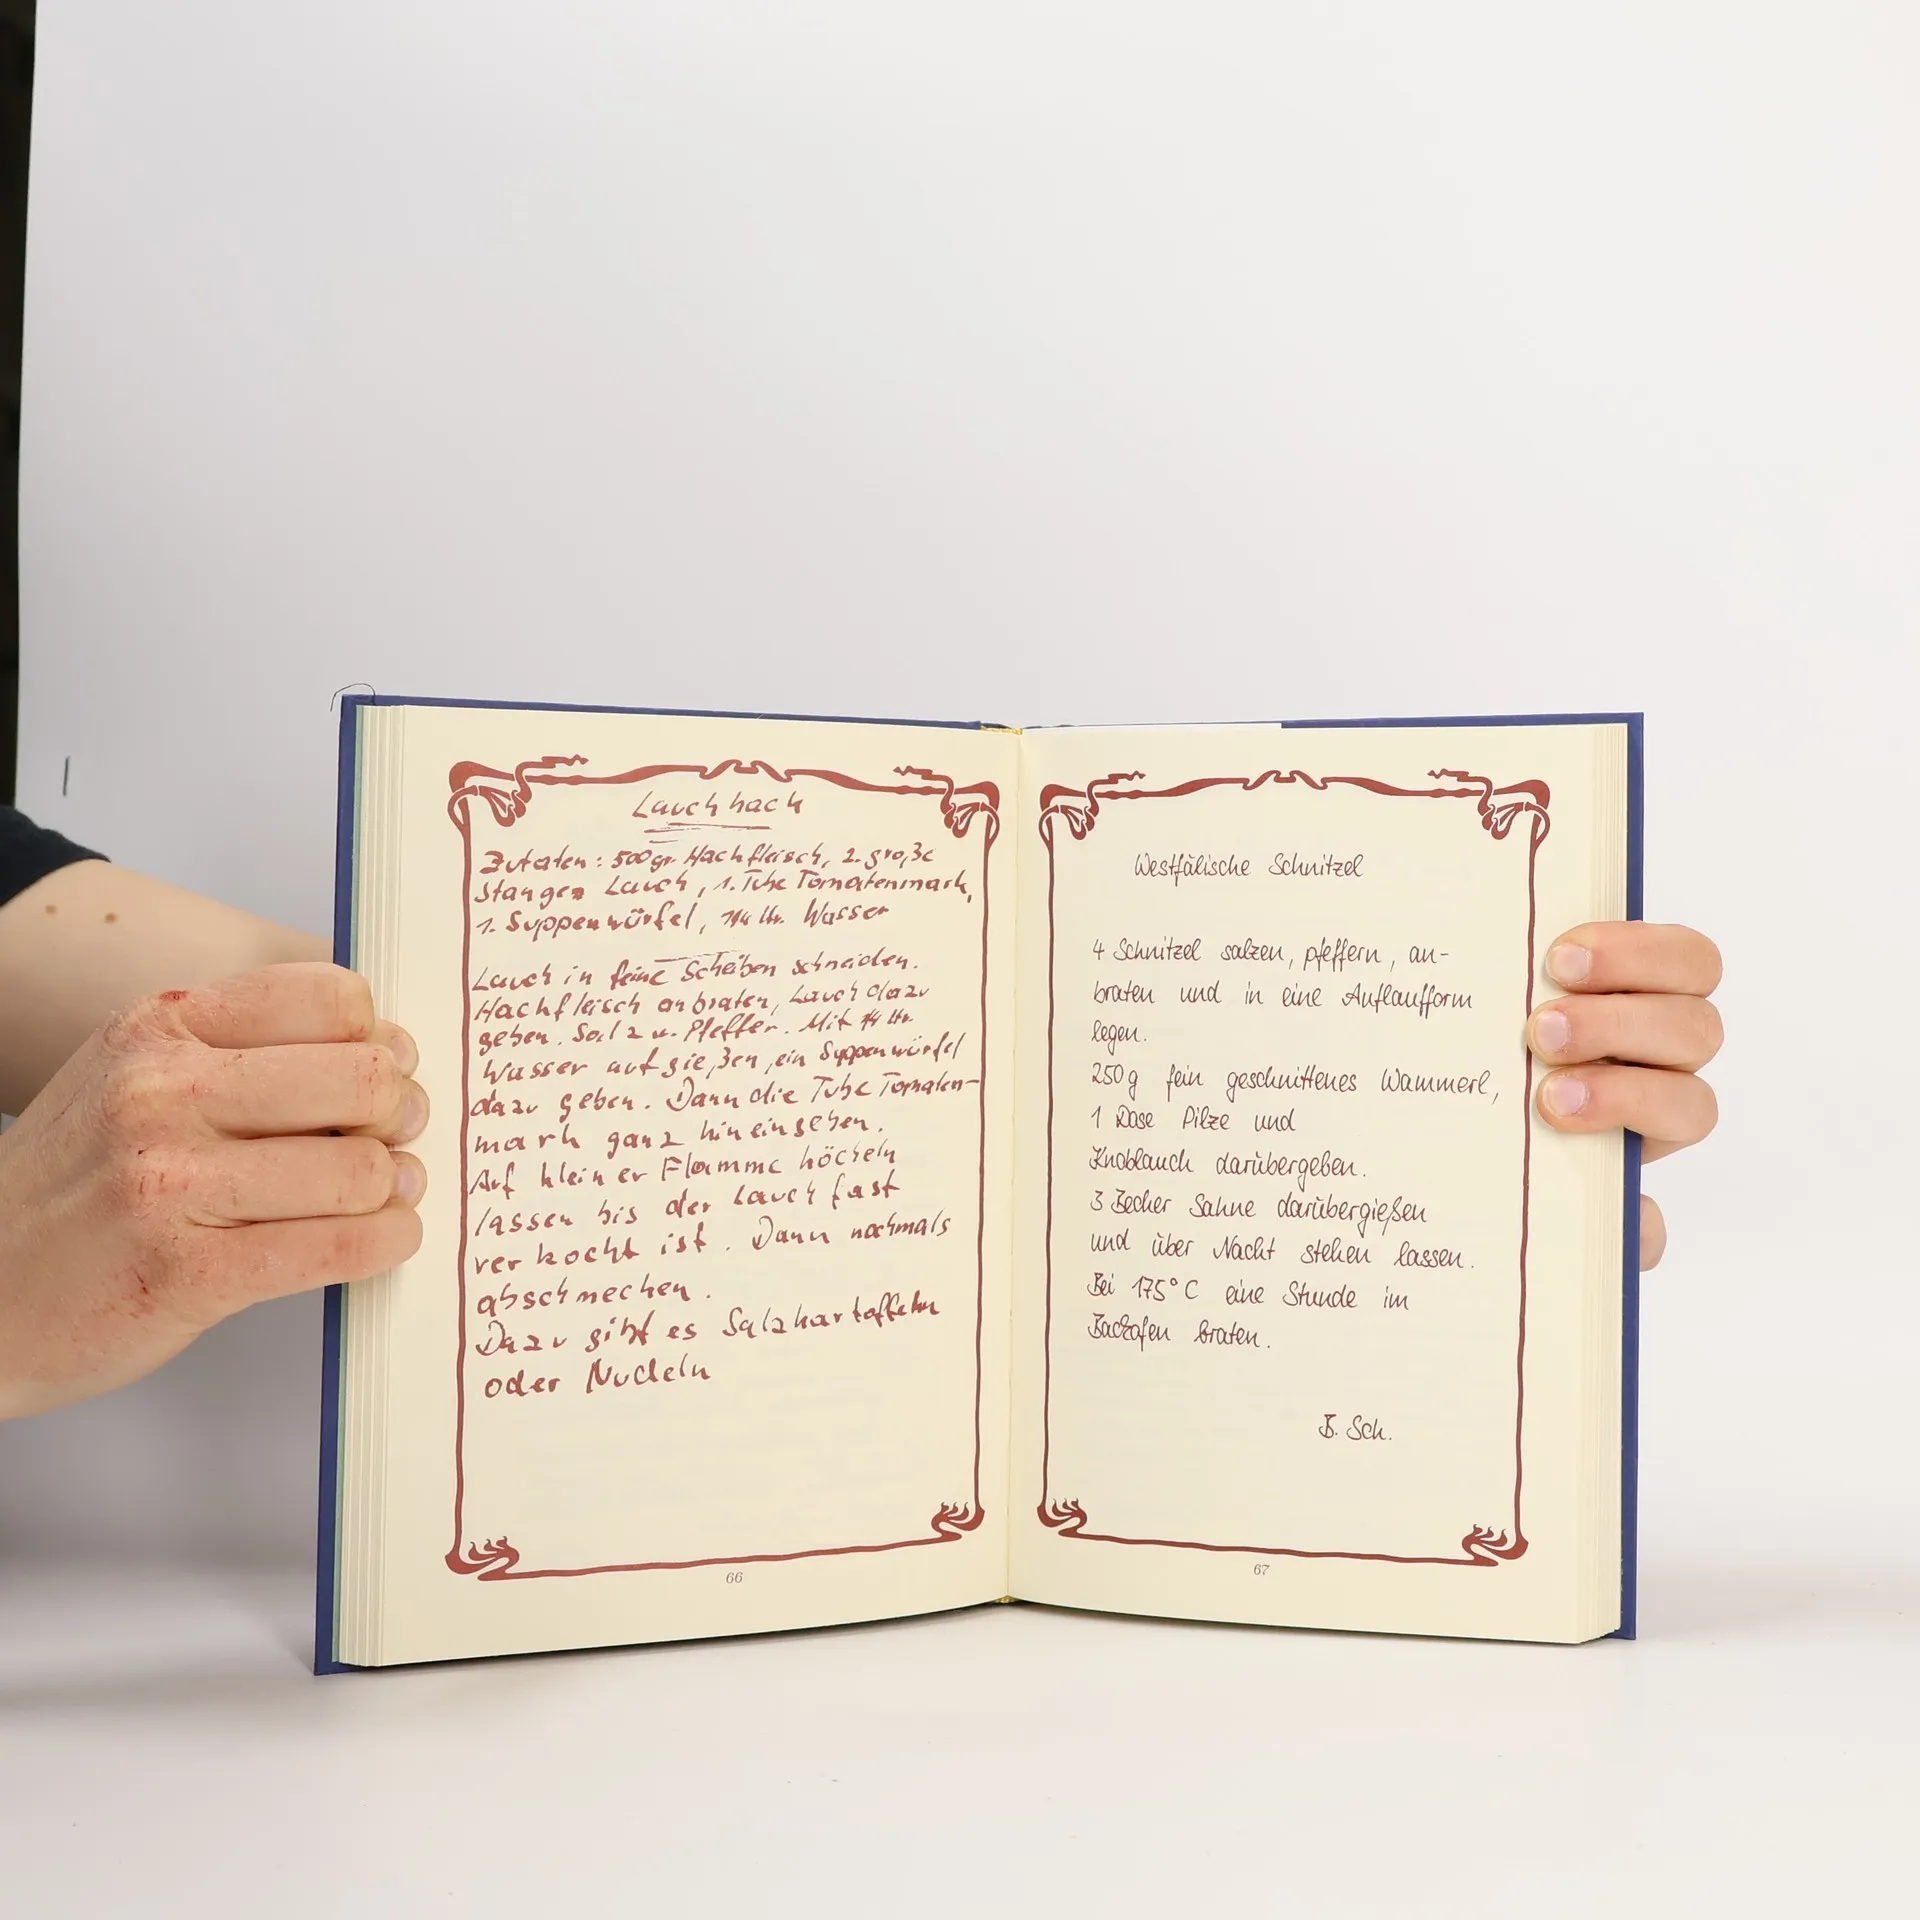 Lauchhack
Zutaten: 500 gr Hackfleisch, 2. große
Stangen Lauch, 1. Tube Tomatenmark,
1. Suppenwürfel, 1/4 ltr. Wasser
Lauch in feine Scheiben schneiden.
Hackfleisch anbraten, Lauch dazu
geben. Salz u. Pfeffer. Mit 1/4 ltr.
Wasser aufgießen, ein Suppenwürfel
dazu geben. Dann die Tube Tomaten-
mark ganz hineingeben.
Auf kleiner Flamme höcheln
lassen bis der Lauch fast
verkocht ist. Dann nochmals
abschmecken.
Dazu gibt es Salzkartoffeln
oder Nudeln
66
Westfälische Schnitzel
4 Schnitzel salzen, pfeffern, an-
braten und in eine Auflaufform
legen.
250g fein geschnittenes Wammerl,
1 Dose Pilze und
Knoblauch darübergeben.
3 Becher Sahne darübergießen
und über Nacht stehen lassen.
Bei 175°C eine Stunde im
Backofen braten.
B. Sch.
67